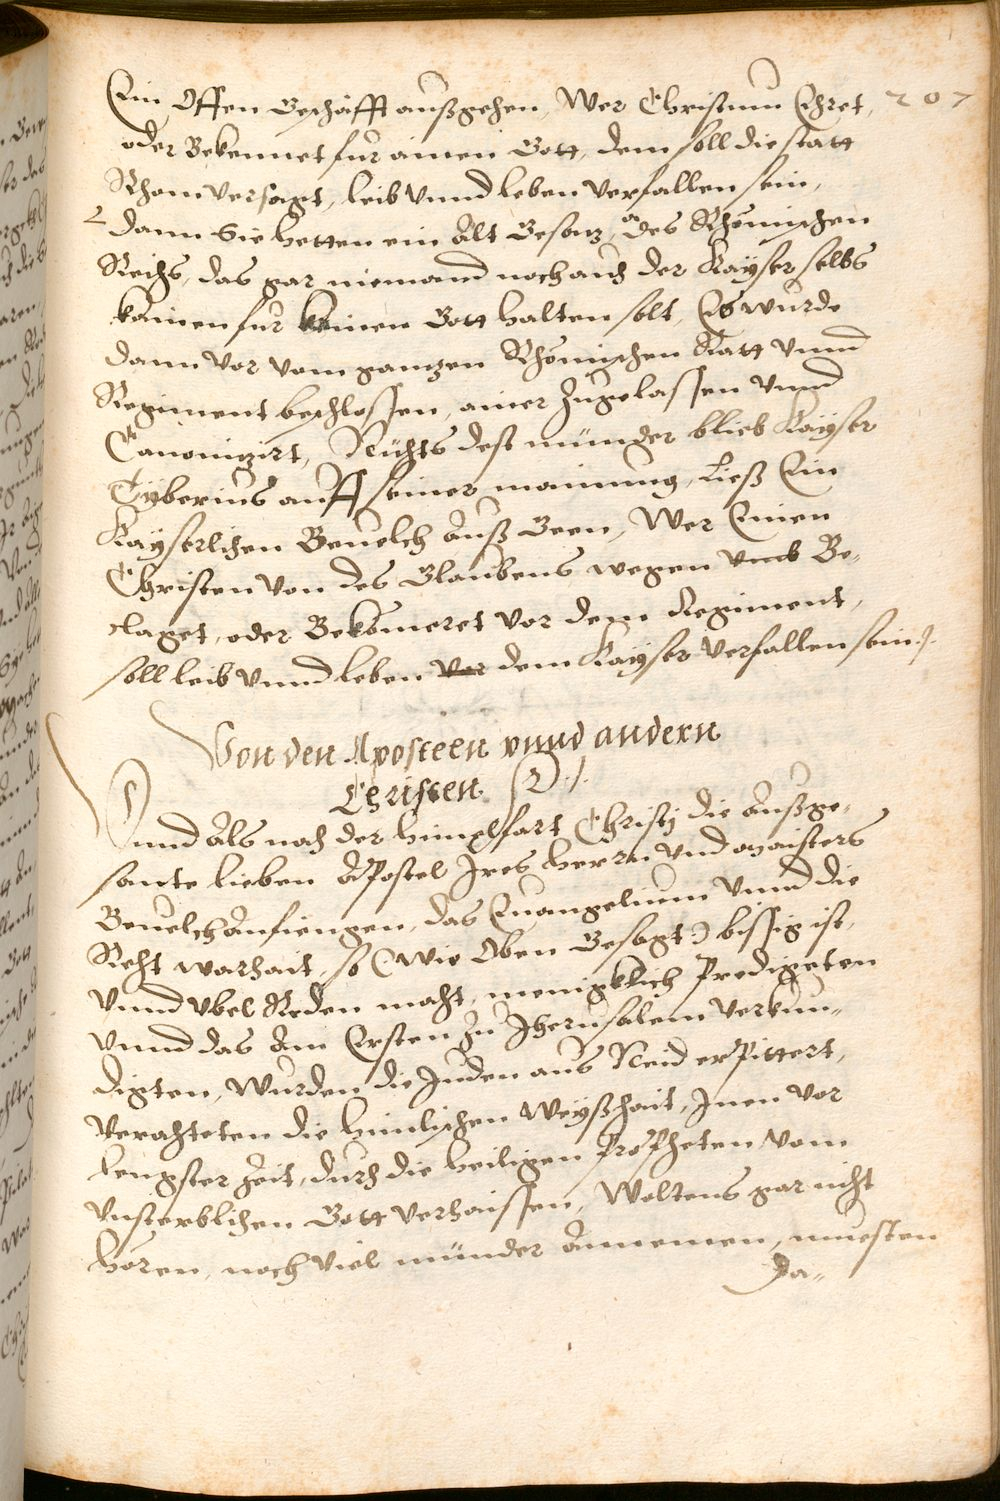 Ein Offen Geschäfft außgehen, Wer Christum Ehret, 207
oder Bekennet für ainen Gott, dem soll die statt
Rhom versagt, leib vnnd leben verfallen sein,
dann Sie hetten ein Alt Gesatz, des Rhömischen
Reichs, das gar niemand noch auch der Kayser selbs
kainen fur keinen Gott halten solt, Es wurde
dann vor vom gantzen Rhömischen Ratt vnnd
Regiment beschlossen, ainer zugelassen vnnd
Canonizirt, Nichts dest münder blieb Kayser
Tyberius auff seiner mainung, Ließ Ein
Kayserlichen Beuelch Auß Geen, Wer Einen
Christen von des Glaubens wegen vmb Be-
claget, oder Bekömeret vor dem Regiment,
soll leib vnnd leben vor dem Kayser verfallen sein ./.
Von den Aposteln vnnd andern
Christen
Vnnd Als nach der himelfart Christj die Außge-
sante lieben Apostel Ires herrn vnd maisters
Beuelch Anfiengen, das Euangelium vnnd die
Recht warhait, so (wie Oben Gesagt:) bissig ist,
vnnd vbel Reden macht, menigklich Predigeten
vnnd das Am Ersten zu Jherusalem verkun-
digten, Wurden die Juden aus Neid erpittert,
verachteten die himlischen Weyßhait, Inen vor
lengster Zeit, durch die heiligen Propheten vom
vnsterblichen Gott verhaissen, Woltens gar nicht
hören, noch viel münder Annemen, muesten
Da-